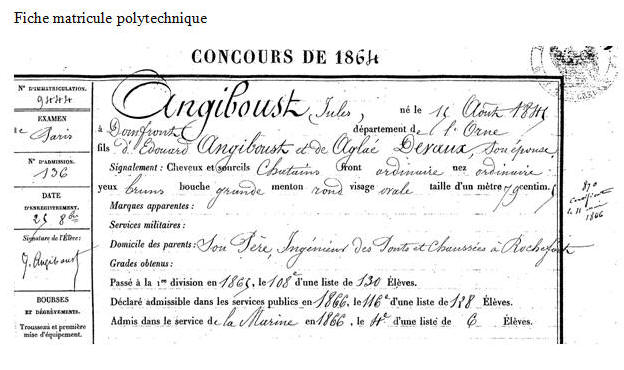 Fiche matricule polytechnique
CONCOURS DE 1864
N° D'IMMATRICULATION.
9444
EXAMEN
de Paris
N° D'ADMISSION.
136
DATE
D'ENREGISTREMENT.
25 8bre
Signature de l'Élève:
J. Angiboust
BOURSES
ET DÉGRÈVEMENTS.
Trousseau et première
mise d'équipement.
Angiboust Jules, né le 15 Août 1845
à Domfront département de l'Orne
fils d'Edouard Angiboust et de Aglaé Devaux, son épouse
Signalement: Cheveux et sourcils Chatains front ordinaire nez ordinaire
yeux bruns bouche grande menton rond visage ovale taille d'un mètre 79 centim.
Marques apparentes:
Services militaires:
Domicile des parents: Son Père, Ingénieur des Ponts et Chaussées à Rochefort
Grades obtenus:
Passé à la 1re division en 1865, le 108e d'une liste de 130 Élèves.
Déclaré admissible dans les services publics en 1866, le 116e d'une liste de 128 Élèves.
Admis dans le service de la Marine en 1866, le 4e d'une liste de 6 Élèves.
1866